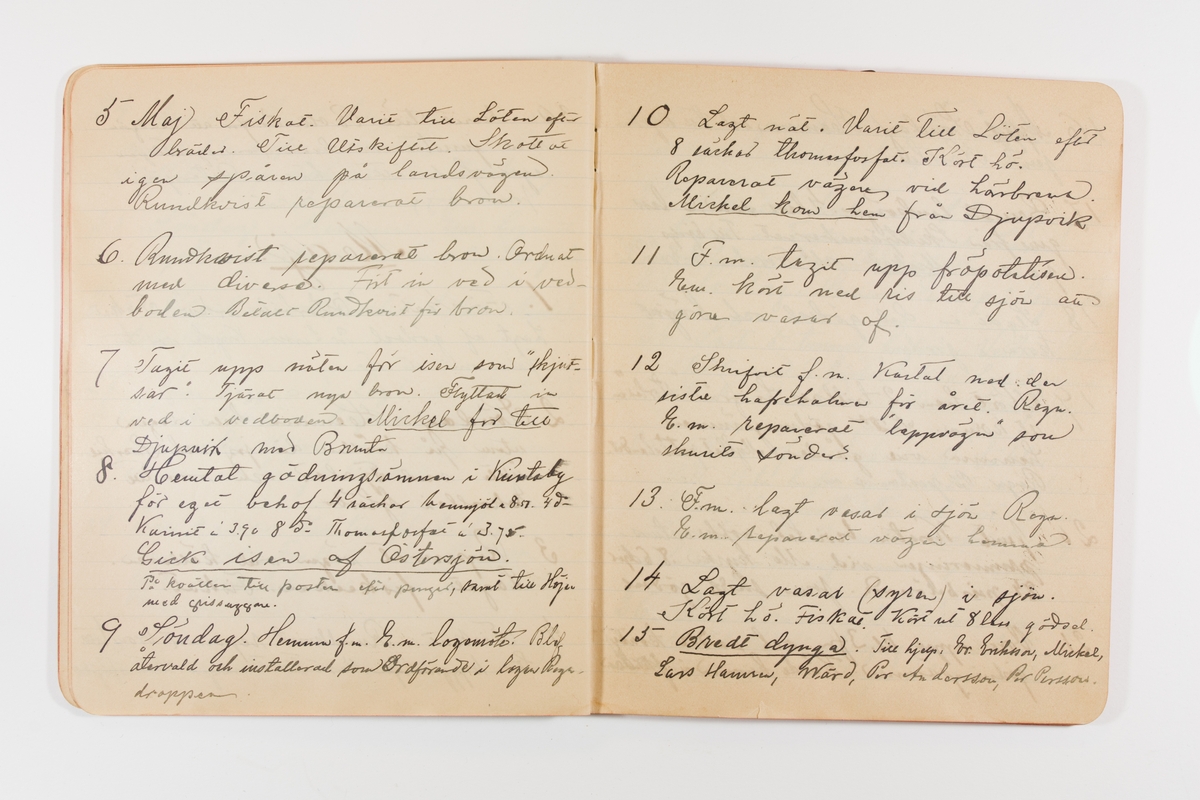 5 Maj Fiskat. Varit till Löten efter
bräder. Till Utskiftet. Skottat
igen spåren på landsvägen.
Rundkvist reparerat bron.
6. Rundkvist reparerat bron. Ordnat
med diverse. Fört in ved i ved-
boden. Betalt Rundkvist för bron.
7 Tagit upp näten för isen som "skjut-
sar". Tjärat nya bron. Flyttat in
ved i vedboden. Mickel for till
Djupvik med Brunta
8. Hemtat gödningsämnen i Kuntsby
för eget behof 4 säckar benmjöl a 8.50. 4 do
Kainit á 3.90 8 do Thomasfosfat á 3.75.
Gick isen af Östersjön.
På kvällen till posten efter pengar, samt till Höjen
med grissuggan.
9 Söndag. Hemma f.m. E.m. logemöte. Blef
återvald och installerad som Ordförande i logen Regn-
droppen.
10 Lagt nät. Varit till Löten efter
8 säckar thomasfosfat. Kört hö.
Reparerat vägen vid härbrena.
Mickel kom hem från Djupvik
11 F.m. tagit upp fröpotatisen.
E.m. kört ned ris till sjön att
göra vasar af.
12 Skrifvit f.m. Kastat ned den
sista hafrehalmen för året. Regn.
E.m. reparerat "leppvägen" som
skurits sönder.
13. F.m. lagt vasar i sjön Regn.
E.m. reparerat vägen hemma.
14 Lagt vasar (syren) i sjön.
Kört hö. Fiskat. Kört ut 8 lass gödsel.
15 Bredt dynga. Till hjelp. Er. Eriksson, Mickel,
Lars Hansen, Wärd, Per Andersson, Per Persson.